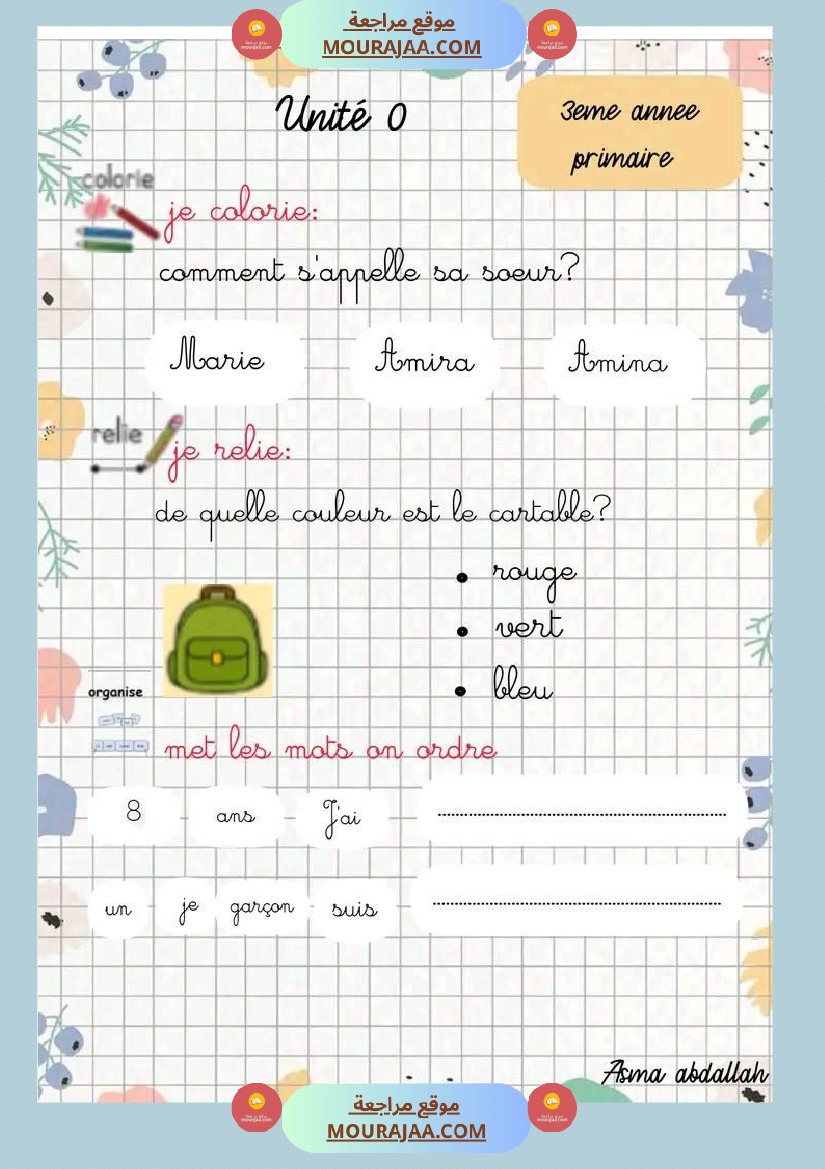 موقع مراجعة
MOURAJAA.COM
Unité 0
3eme annee
primaire
colorie
je colorie:
comment s'appelle sa soeur?
Marie Amira Amina
relie
je relie:
de quelle couleur est le cartable?
rouge
vert
bleu
organise
met les mots on ordre
8 ans J'ai ........................
un je garçon suis ........................
Asma abdallah
موقع مراجعة
MOURAJAA.COM